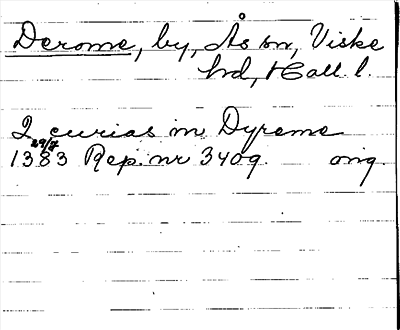 Derome, by, Ås sn, Viske
hd, Hall. l.
2 curias in Dyreme
29/7
1383 Rep. nr 3409. orig.